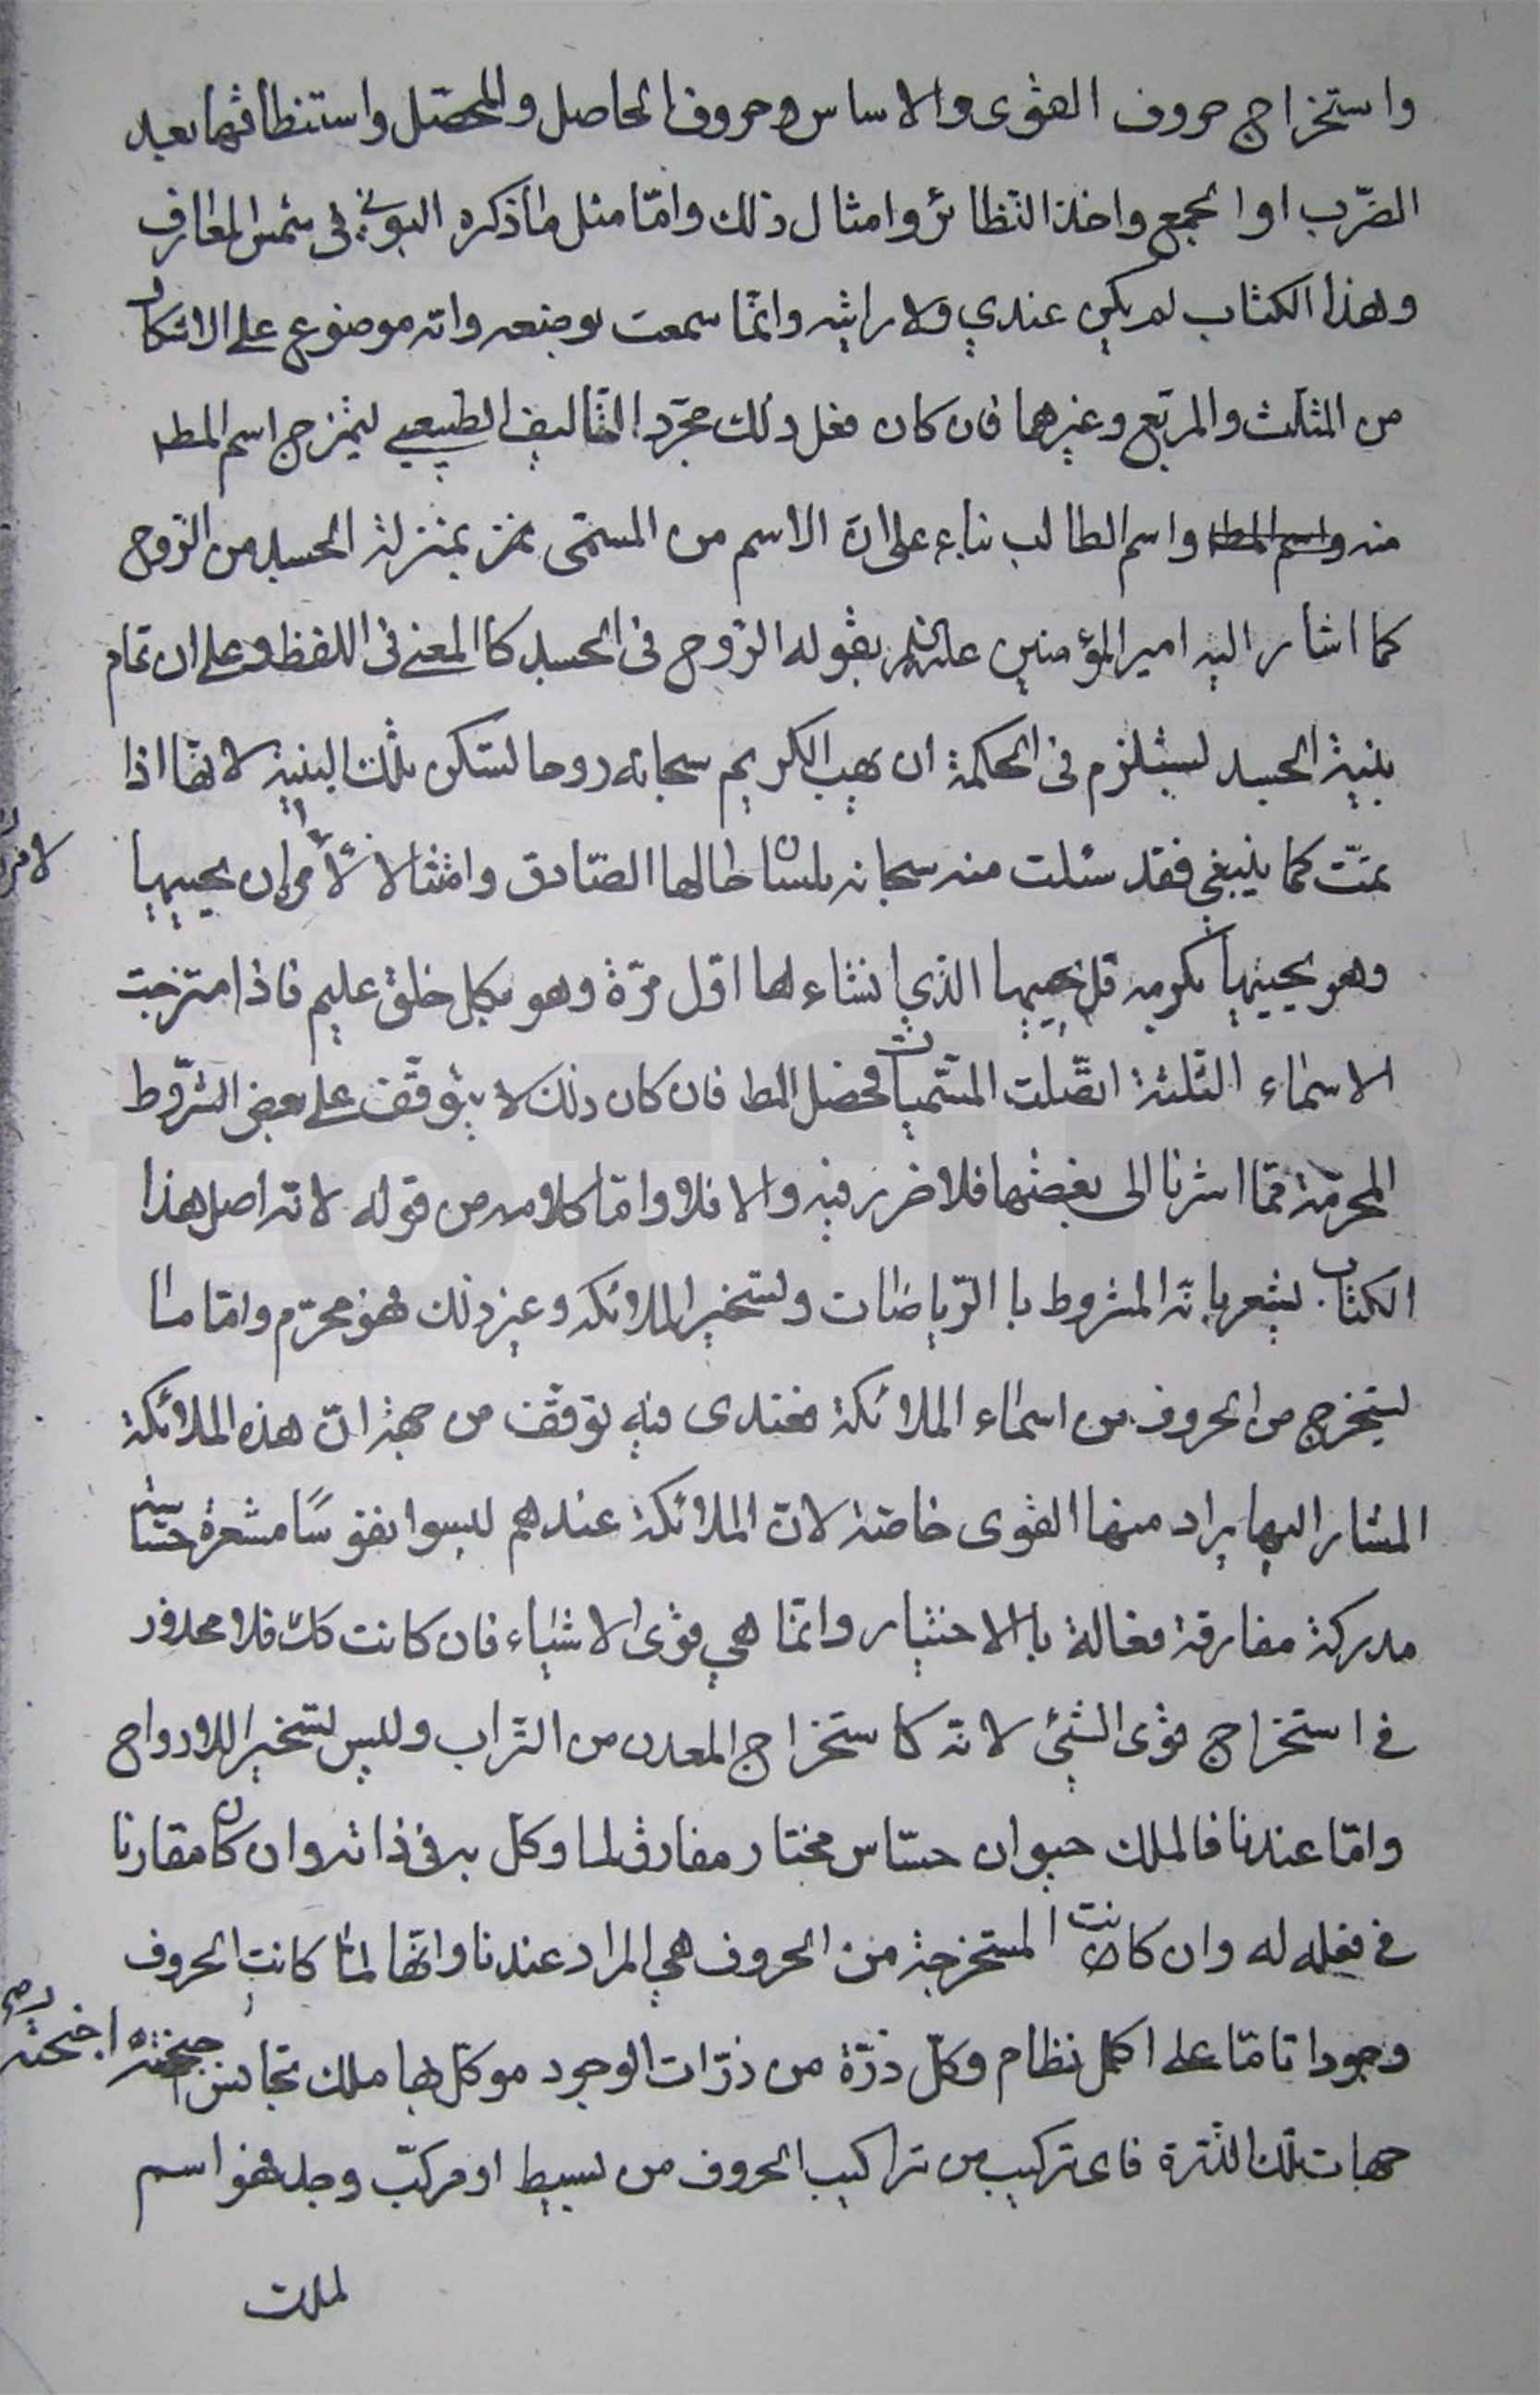 واستخراج حروف القوى والاساس وحروف الحاصل والمحصّل واستنطاقها بعد
الضّرب او الجمع واخذ النّظائر وامثال ذلك وامّا مثل ما ذكره البوني في شمس المعارف
وهذا الكتاب لم يكن عندي ولا رايته وانّما سمعت بوضعه وانه موضوع على الاشكال
من المثلّث والمربّع وغيرها فان كان فعل ذلك مجرّد التّاليف الطبيعي ليمتزج اسم المط
منه واسم المط واسم الطالب بناء على انّ الاسم من المسمّى بمنزلة الجسد من الرّوح
كما اشار اليه امير المؤمنين بقوله الرّوح في الجسد كالمعنى في اللفظ وعلى ان تمام
بنية الجسد يستلزم في الحكمة ان يهب الكريم سبحانه روحا لتسكن تلك البنية لانّها اذا
تمّت كما ينبغي فقد سئلت منه سبحانه بلسان حالها الصّادق وامتثالا لأمره ان يحييها
لامره
وهو يحييها بكرمه قل يحييها الذي انشاءها اوّل مرّة وهو بكل خلق عليم فاذا امتزجت
الاسماء الثلثة اتّصلت المسمّيات فحصل المط فان كان ذلك لا يتوقّف على بعض الشّروط
المحرمّة ممّا اشرنا الى بعضها فلا ضرر فيه والا فلا وامّا كلامه من قوله لانّه اصل هذا
الكتاب يشعر بانّه المشروط با الرّياضات وتسخير الملائكه وغير ذلك فهو محرّم وامّا ما
يستخرج من الحروف من اسماء الملائكة فعندى فيه توقّف من جهة انّ هذه الملائكة
المشار اليها يراد منها القوى خاصّة لانّ الملائكة عندهم ليسوا نفوسًا مشعرة حسّاسة
مدركة مفارقة فعالة با الاختيار وانّما هي قوى الاشياء فان كانت كك فلا محذور
في استخراج قوى الشئ لانّه كاستخراج المعدن من التّراب وليس تسخيرا للارواح
وامّا عندنا فالملك حيوان حسّاس مختار مفارق لما وكل به في ذاته وان كان مقارنا
في فعله له وان كانت المستخرجة من الحروف هي المراد عندنا وانّها لمّا كانت الحروف
وجودا تامّا على اكمل نظام وكلّ ذرّة من ذرّات الوجود موكّل بها ملك تجانس اجنحته
اجنحته
جهات تلك الذّرة فاى تركيب من تراكيب الحروف من بسيط او مركّب وجد فهو اسم
لملك